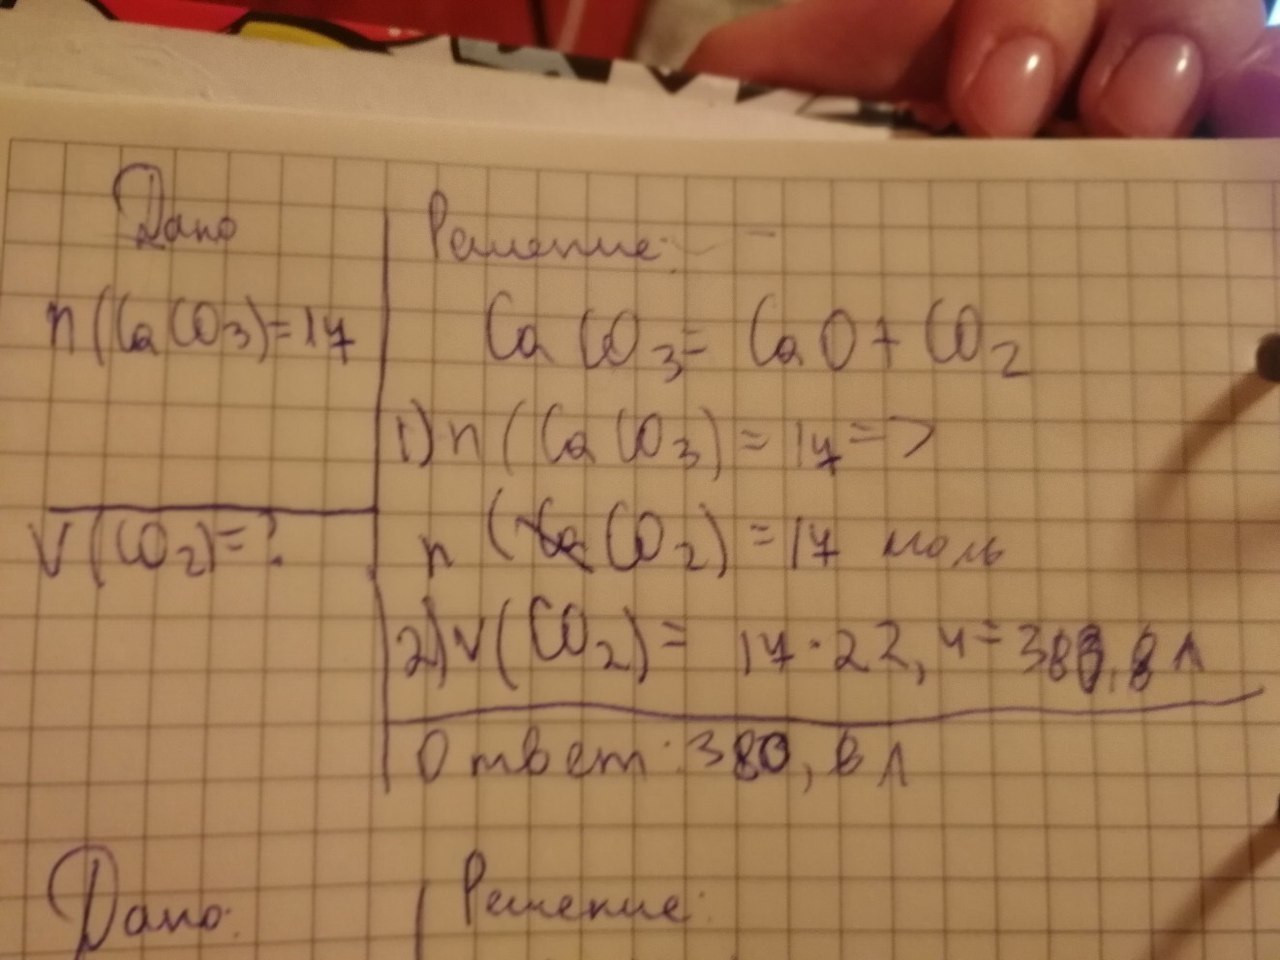 Дано
n(CaCO3)=17
V(CO2)=?
Решение:
CaCO3= CaO+CO2
1) n(CaCO3)=17=>
n(CO2)=17 моль
2) V(CO2)= 17·22,4=380,8 л
Ответ: 380,8 л
Дано:
Решение: